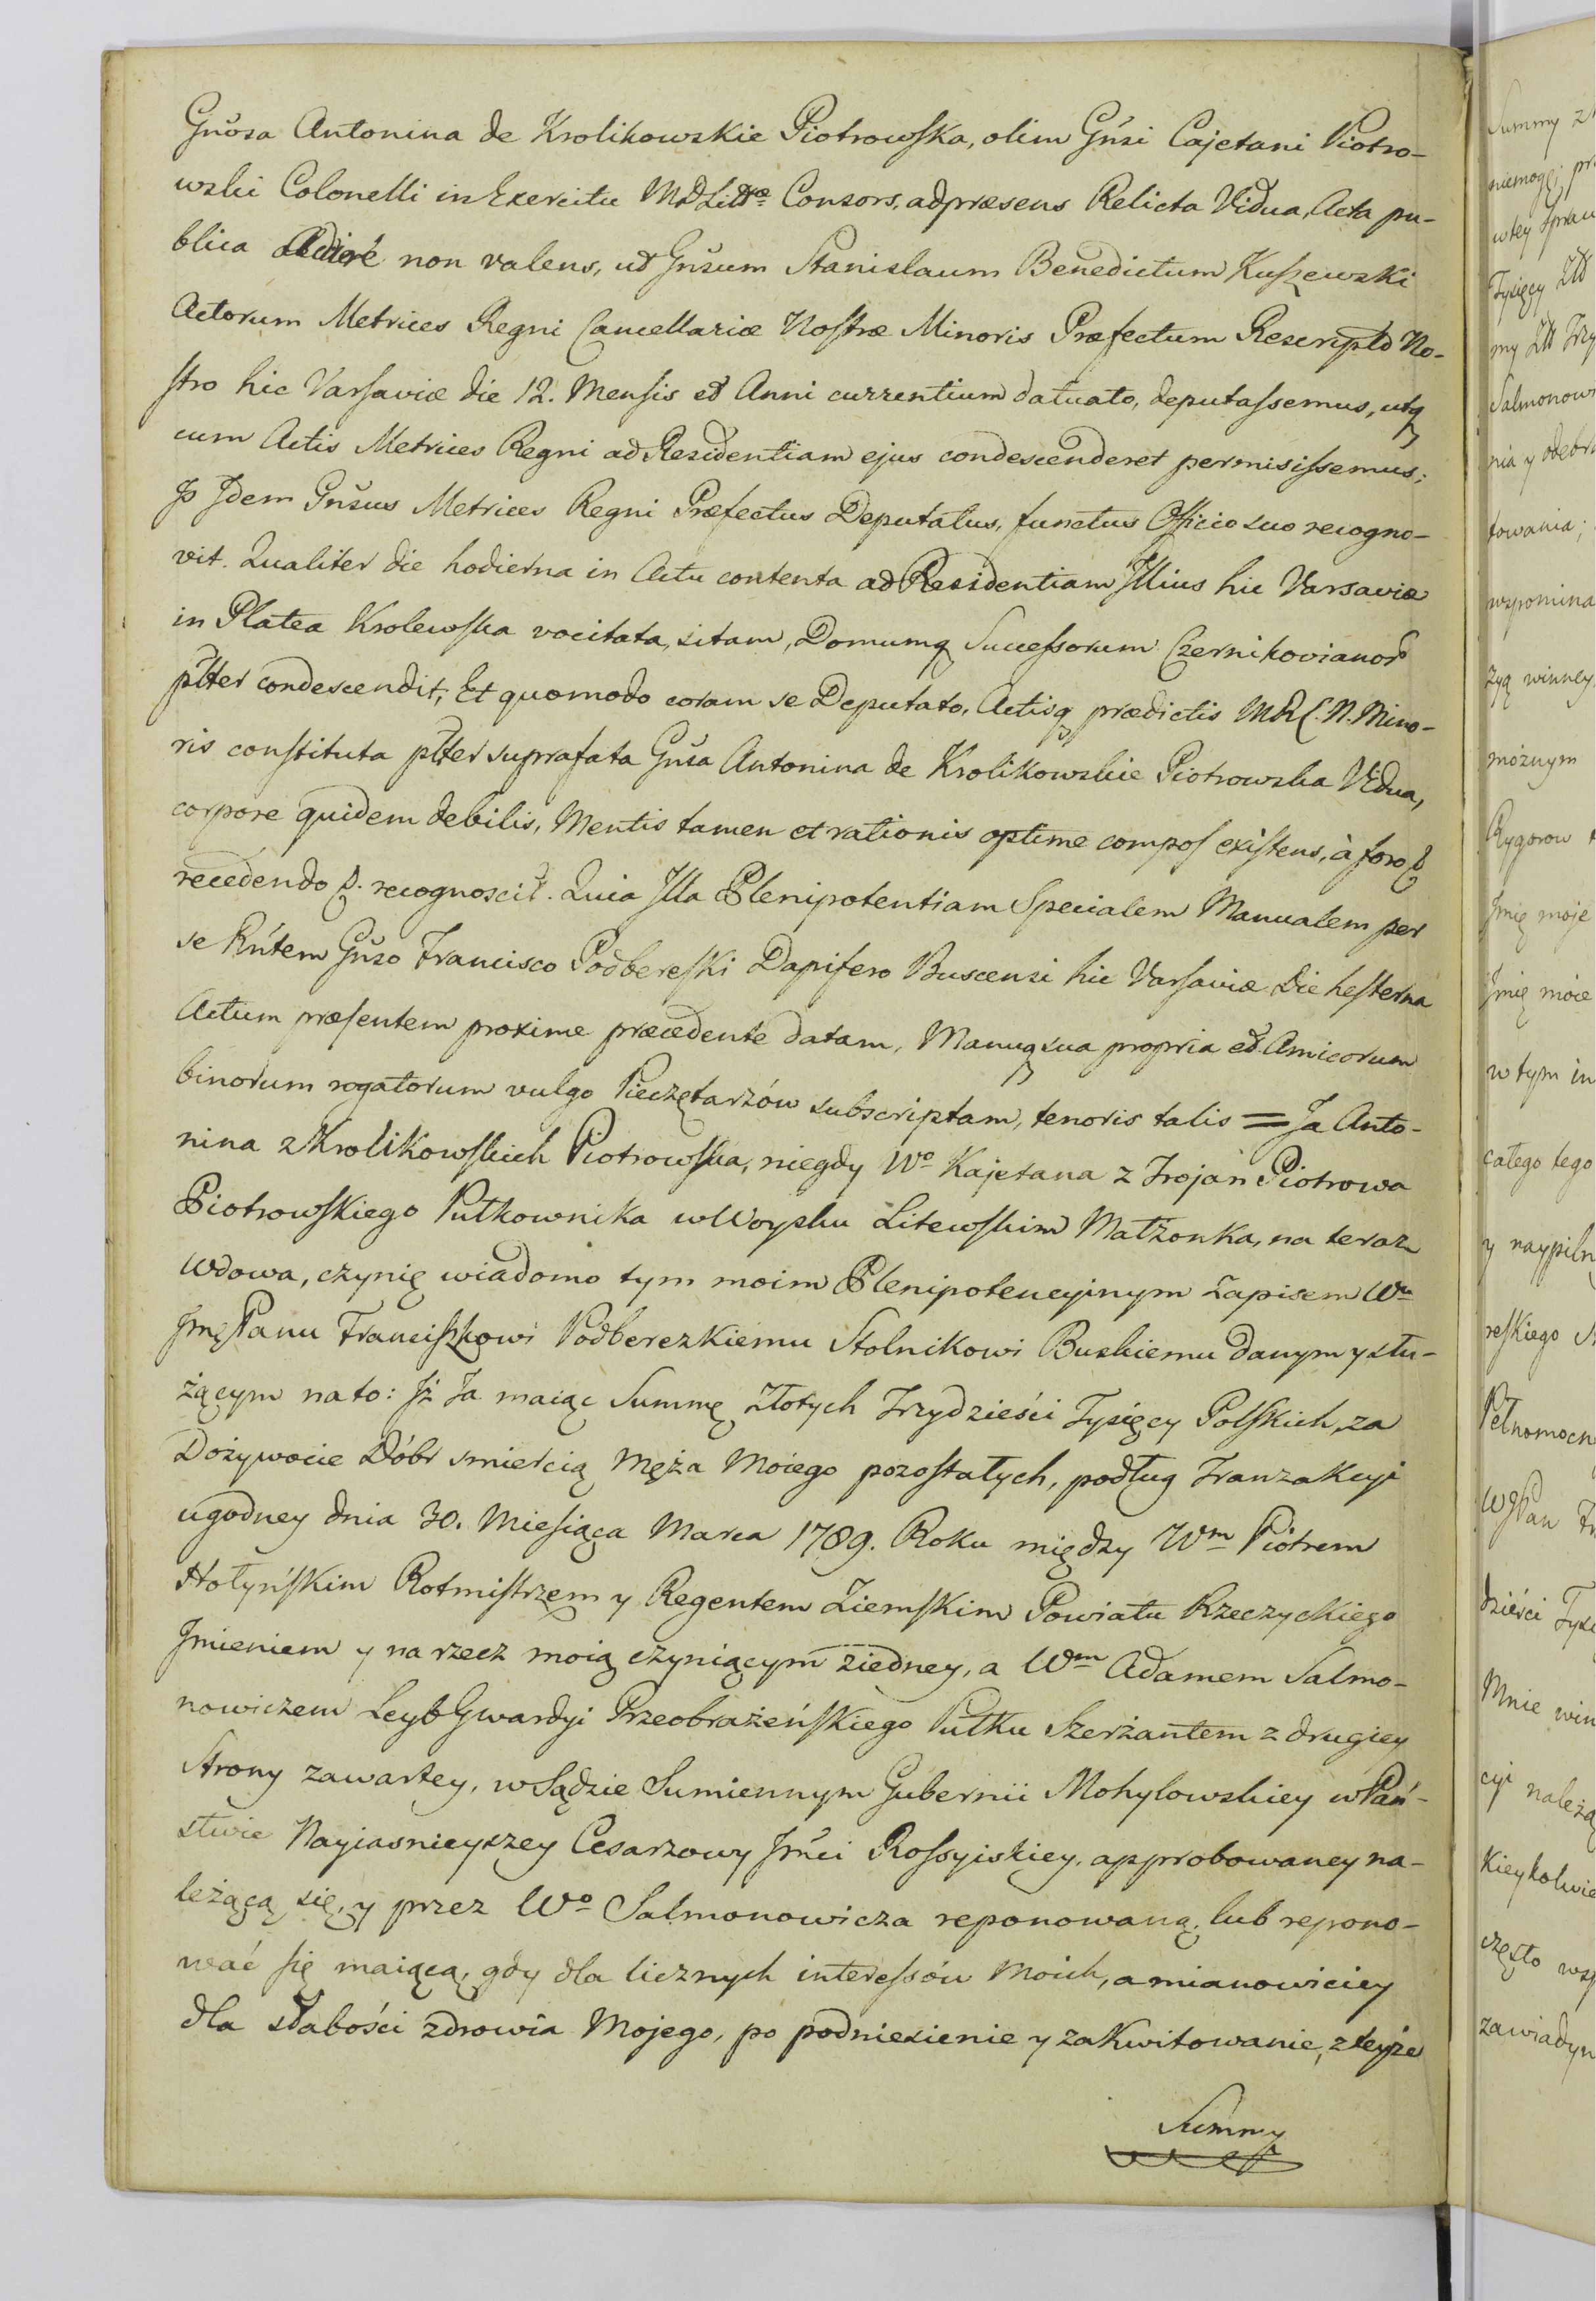 Gnősa Antonina de Krolikowskie Piotrowſka, olim Gnősi Cajetani Piotro-
wski Colonelli in Exercitu MDLittæ Consors, adpræsens Relicta Vidua, Acta pu-
blica adire non valens, ut Gnősum Stanislaum Benedictum Kuſzewski
Actorum Metrices Regni Cancellariæ Noſtræ Minoris Præfectum Rescripto No-
ſtro hic Varſaviæ die 12. Menſis et Anni currentium datuato, deputaſsemus, utq
cum Actis Metrices Regni ad Residentiam ejus condescenderet permisiſsemus;
Is Idem Gnősus Metrices Regni Præfectus Deputatus, functus Officio suo recogno-
vit. Qualiter die hodierna in Actu contenta ad Residentiam Illius hic Varsaviæ
in Platea Krolewſka vocitata, sitam, Domumq Succeſsorum Czernikovianor
pltter condescendit; Et quomodo coram se Deputato, Actisq prædictis MRC.N. Mino-
ris conſtituta pltter suprafata Gnősa Antonina de Krolikowskie Piotrowska Vidua,
corpore quidem debilis, Mentis tamen et rationis optime compoſ exiſtens, à foro &
recedendo &. recognoscit. Quia Illa Plenipotentiam Specialem Manualem per
se Rńtem Gnőso Francisco Podbereſki Dapifero Buscensi hic Varſaviæ Die heſterna
Actum præſentem proxime præcedente datam, Manuq sua propria et Amicorum
binorum rogatorum vulgo Pieczętarzów subscriptam, tenoris talis = Ja Anto-
nina z Krolikowſkich Piotrowſka, niegdy Wo Kajetana z Trojań Piotrowa
Piotrowſkiego Pułkownika w Woysku Litewſkim Małżonka, na teraz
Wdowa, czynię wiadomo tym moim Plenipotencyinym Zapisem Wu
Jmę Panu Franciſzkowi Podberezkiemu Stolnikowi Buskiemu danym y słu-
żącym na to: Iż Ja maiąc Summę Złotych Trzydzieści Tysięcy Polſkich, za
Dożywocie Dóbr smiercią Męża Moiego pozoſtałych, podług Tranzakcyi
ugodney dnia 30. Mieſiąca Marca 1789. Roku między Wm Piotrem
Hołyńſkim Rotmiſtrzem y Regentem Ziemſkim Powiatu Rzeczyckiego
Imieniem y na rzecz moią czyniącym ziedney, a Wm Adamem Salmo-
nowiczem Leyb Gwardyi Przeobrażeńſkiego Pułku Szerżantem z drugiey
Strony zawartey, w Sądzie Sumiennym Gubernii Mohylowskiey w Pań-
stwie Nayiasnieyszey Cesarzowy Jmći Roſsyiskiey, approbowaney na-
leżącą się, y przez Wo Salmonowicza reponowaną, lub repono-
wać ſię maiącą, gdy dla licznych intereſsów Moich, a mianowiciey
dla słabości zdrowia Mojego, po podniesienie y zakwitowanie, z teyże
Summy
Summy z
niemogę; pr
w tey spraw
Tysięcy Złt
my Złt Trzy
Salmonow
nia y odebra
towania;
wspomina
żyą winney
możnym
Rygorow
Imię moje
Imię moie
w tym in
całego tego
y naypiln
reſkiego S
Pełnomocn
WJPan F
dzieści Tysi
Mnie win
cyi należą
kieykolwie
często wsp
zawiadyw